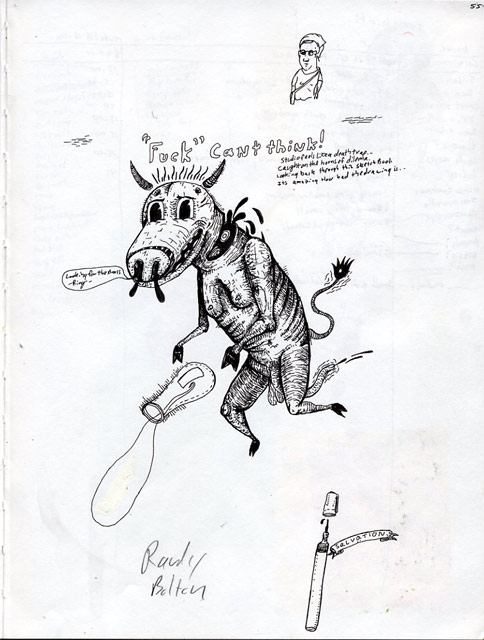 55
"Fuck" Cant think!
Studio feels like a death trap...
Caught on the horns of dilema.
Looking back through this sketch Book
Its amazing How bad the drawing is..
Looking for the Brass
-Ring-
SALVATION
Randy
Bolton